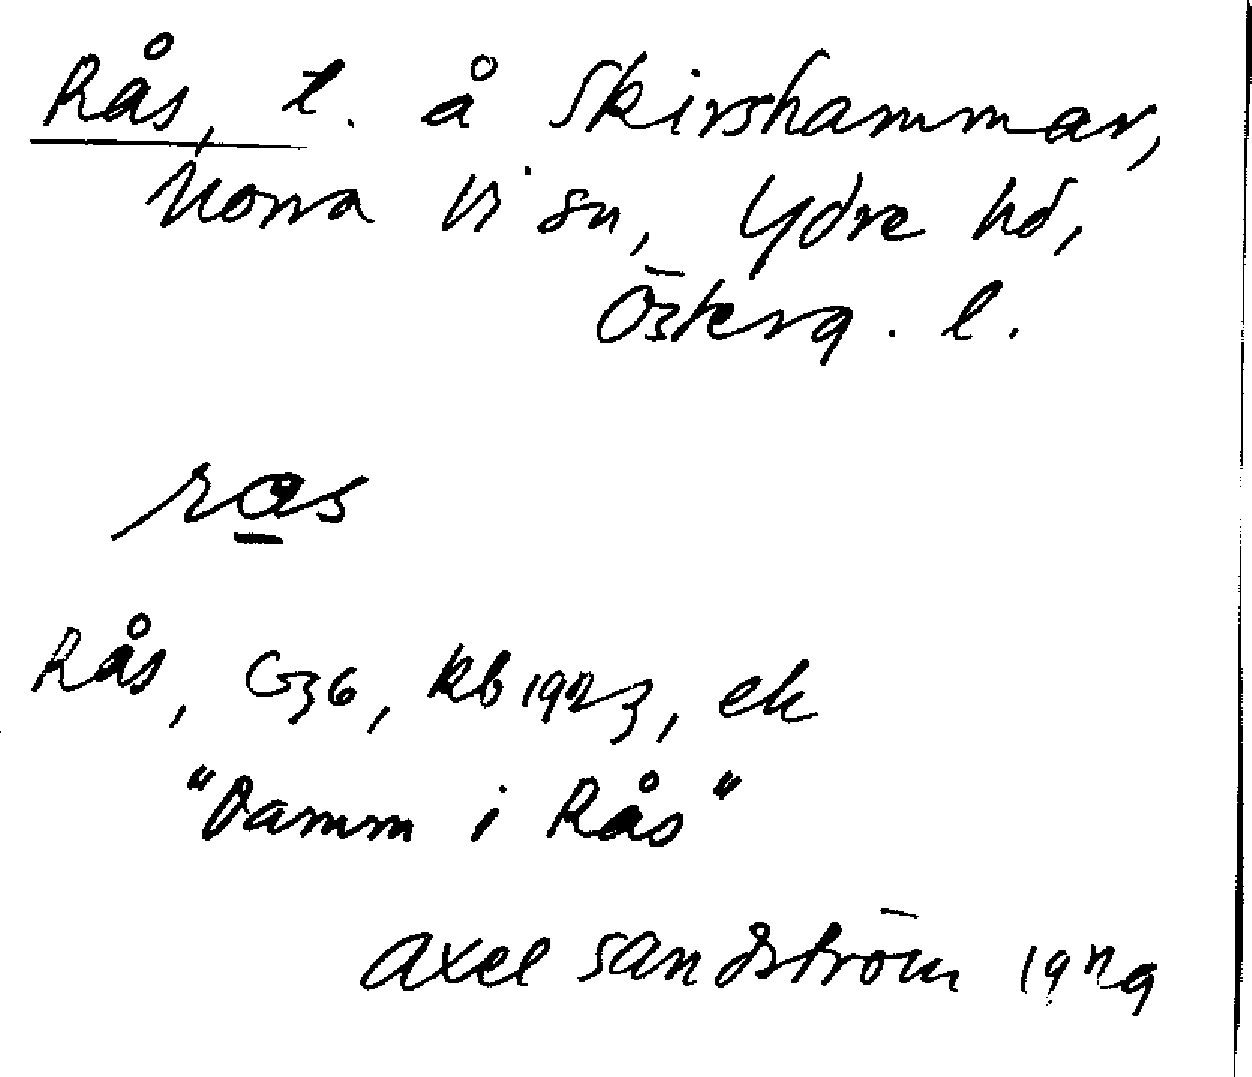 Rås, t. å Skirshammar,
Norra Vi sn, Ydre hd,
Österg. l.
ras
Rås, G36, kb 1923, ek
"Damm i Rås"
Axel Sandström 1929